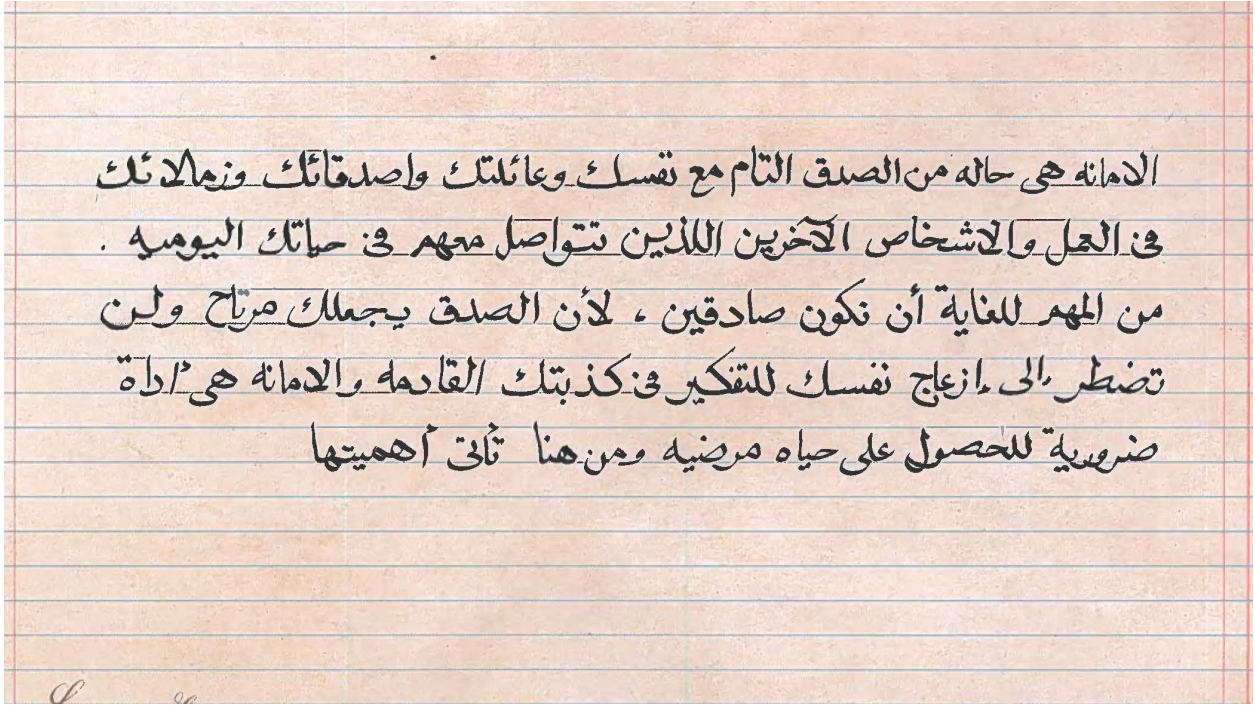 الامانه هى حاله من الصدق التام مع نفسك وعائلتك واصدقائك وزملائك
فى العمل والاشخاص الآخرين اللذين تتواصل معهم فى حياتك اليوميه .
من المهم للغاية أن نكون صادقين ، لأن الصدق يجعلك مرتاح ولن
تضطر إلى إزعاج نفسك للتفكير فى كذبتك القادمه والامانه هى أداة
ضرورية للحصول على حياه مرضيه ومن هنا تأتى أهميتها